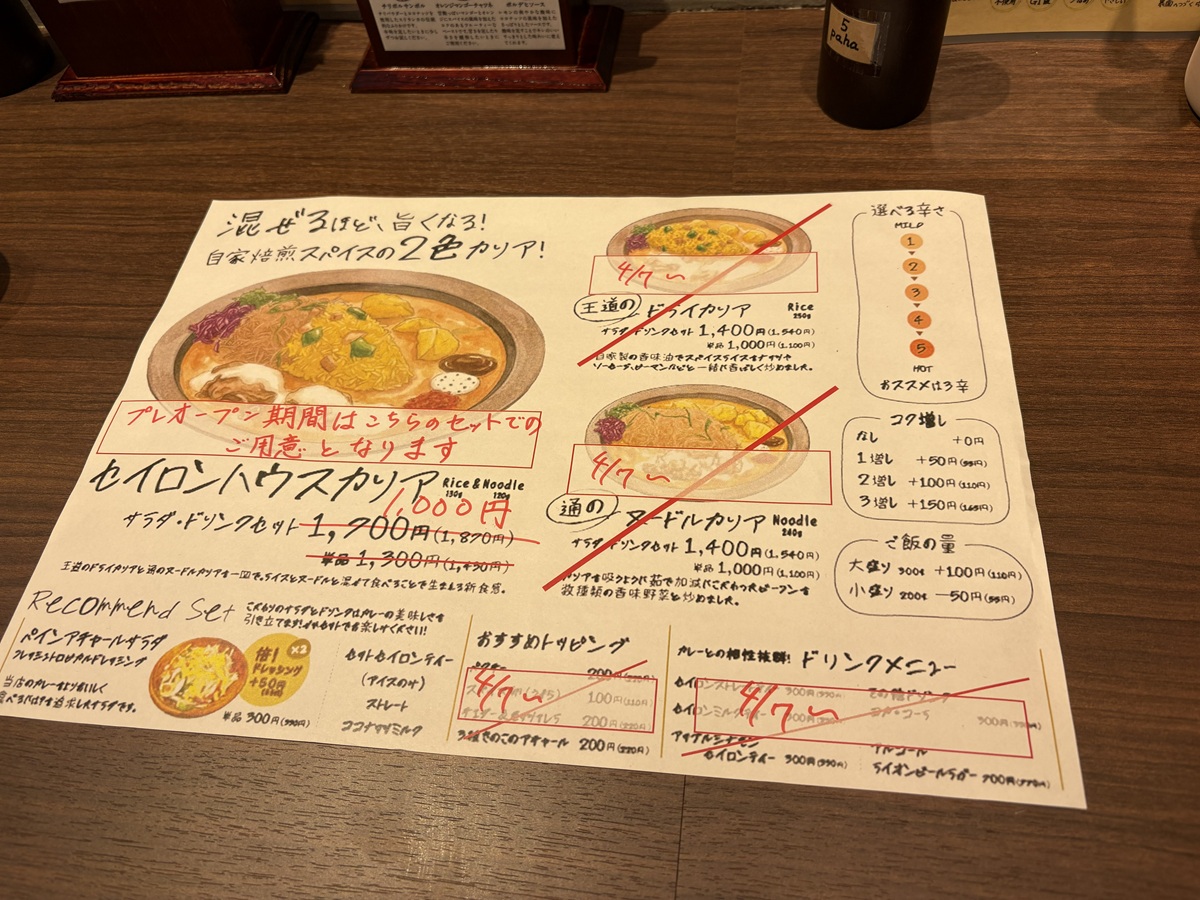 5
paha
混ぜるほど、旨くなる!
自家焙煎スパイスの2色カリア!
プレオープン期間はこちらのセットでの
ご用意となります
セイロンハウスカリア
Rice & Noodle
130g 120g
1,000円
サラダ・ドリンクセット 1,700円(1,870円)
単品 1,300円(1,430円)
王道のドライカリアと通のヌードルカリアを一皿で。ライスとヌードルと混ぜて食べることで生まれる新食感。
4/7〜
王道の ドライカリア
Rice
250g
サラダ・ドリンクセット 1,400円(1,540円)
単品 1,000円(1,100円)
自家製の香味油でスパイスライスをナッツや
ソーセージ、ピーマンなどと一緒に香ばしく炒めました。
4/7〜
通の ヌードルカリア
Noodle
240g
サラダ・ドリンクセット 1,400円(1,540円)
単品 1,000円(1,100円)
カリアを吸うように茹で加減にこだわったビーフンを
数種類の香味野菜と炒めました。
選べる辛さ
MILD
1
2
3
4
5
HOT
おススメは3辛
コク増し
なし +0円
1増し +50円(55円)
2増し +100円(110円)
3増し +150円(165円)
ご飯の量
大盛り 300g +100円(110円)
小盛り 200g −50円(55円)
Recommend Set
こだわりのサラダとドリンクはカレーの美味しさを
引き立てます!ぜひセットでお楽しみください!
パインアチャールサラダ
フレッシュトロピカルドレッシング
当店のカレーをよりおいしく
食べらばけを追求したサラダです。
倍! ×2
ドレッシング
+50円
単品 300円(330円)
セットセイロンティー
(アイスのみ)
ストレート
ココナッツミルク
おすすめトッピング
200円
4/7〜
100円(110円)
200円(220円)
3種きのこのアチャール 200円(220円)
カレーとの相性抜群! ドリンクメニュー
4/7〜
セイロンストレートティー 300円(330円)
セイロンミルクティー 300円
アップルシナモン
セイロンティー 300円(330円)
その他ドリンク
300円
アルコール
ライオンビールラガー 700円(770円)